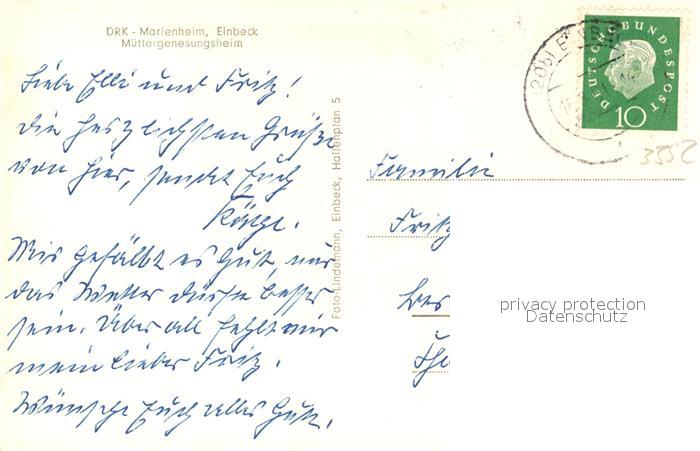 DRK - Marienheim, Einbeck
Müttergenesungsheim
Liebe Elli und Fritz!
Die herzlichsten Grüße
von hier, sendet Euch
Käthe.
Mir gefällt es gut, nur
das Wetter dürfte besser
sein. Über all fehlt mir
mein lieber Fritz.
Wünsche Euch alles Gute.
Foto-Lindemann, Einbeck, Hallenplan 5
(20b) EINB
DEUTSCHE BUNDESPOST
10
3552
Familie
Fritz
privacy protection
Datenschutz